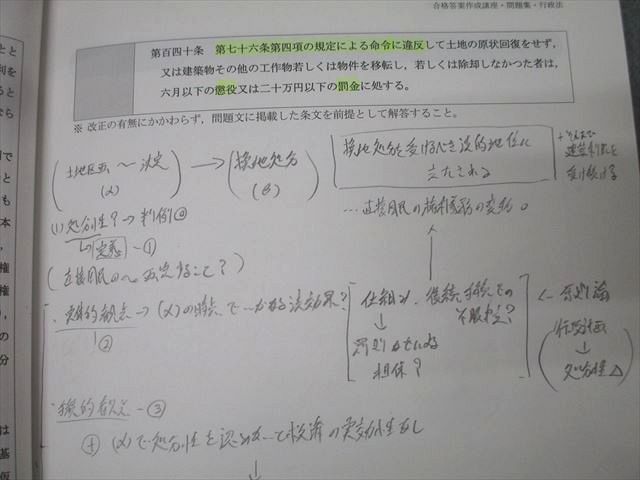 合格答案作成講座・問題集・行政法
第百四十条　第七十六条第四項の規定による命令に違反して土地の原状回復をせず，
又は建築物その他の工作物若しくは物件を移転し，若しくは除却しなかつた者は，
六月以下の懲役又は二十万円以下の罰金に処する。
※ 改正の有無にかかわらず，問題文に掲載した条文を前提として解答すること。
土地区画〜決定
(α)
→
換地処分
(β)
換地処分を受けるべき法的地位に
立たされる
建築制限を
受け続ける
(1) 処分性? → 判例⓪
定義 - ①
(直接国民の〜確定すること?)
…直接国民の権利義務の変動。
・実体的観点 → (α)の時点で…いかなる法効果?
②
仕組み、後続手続での
不服申立?
罰則などによる
担保?
← 原則論
行政計画
↓
処分性△
・手続的観点 - ③
⊕ (α)で処分性を認めなくて救済の実効性なし
↓